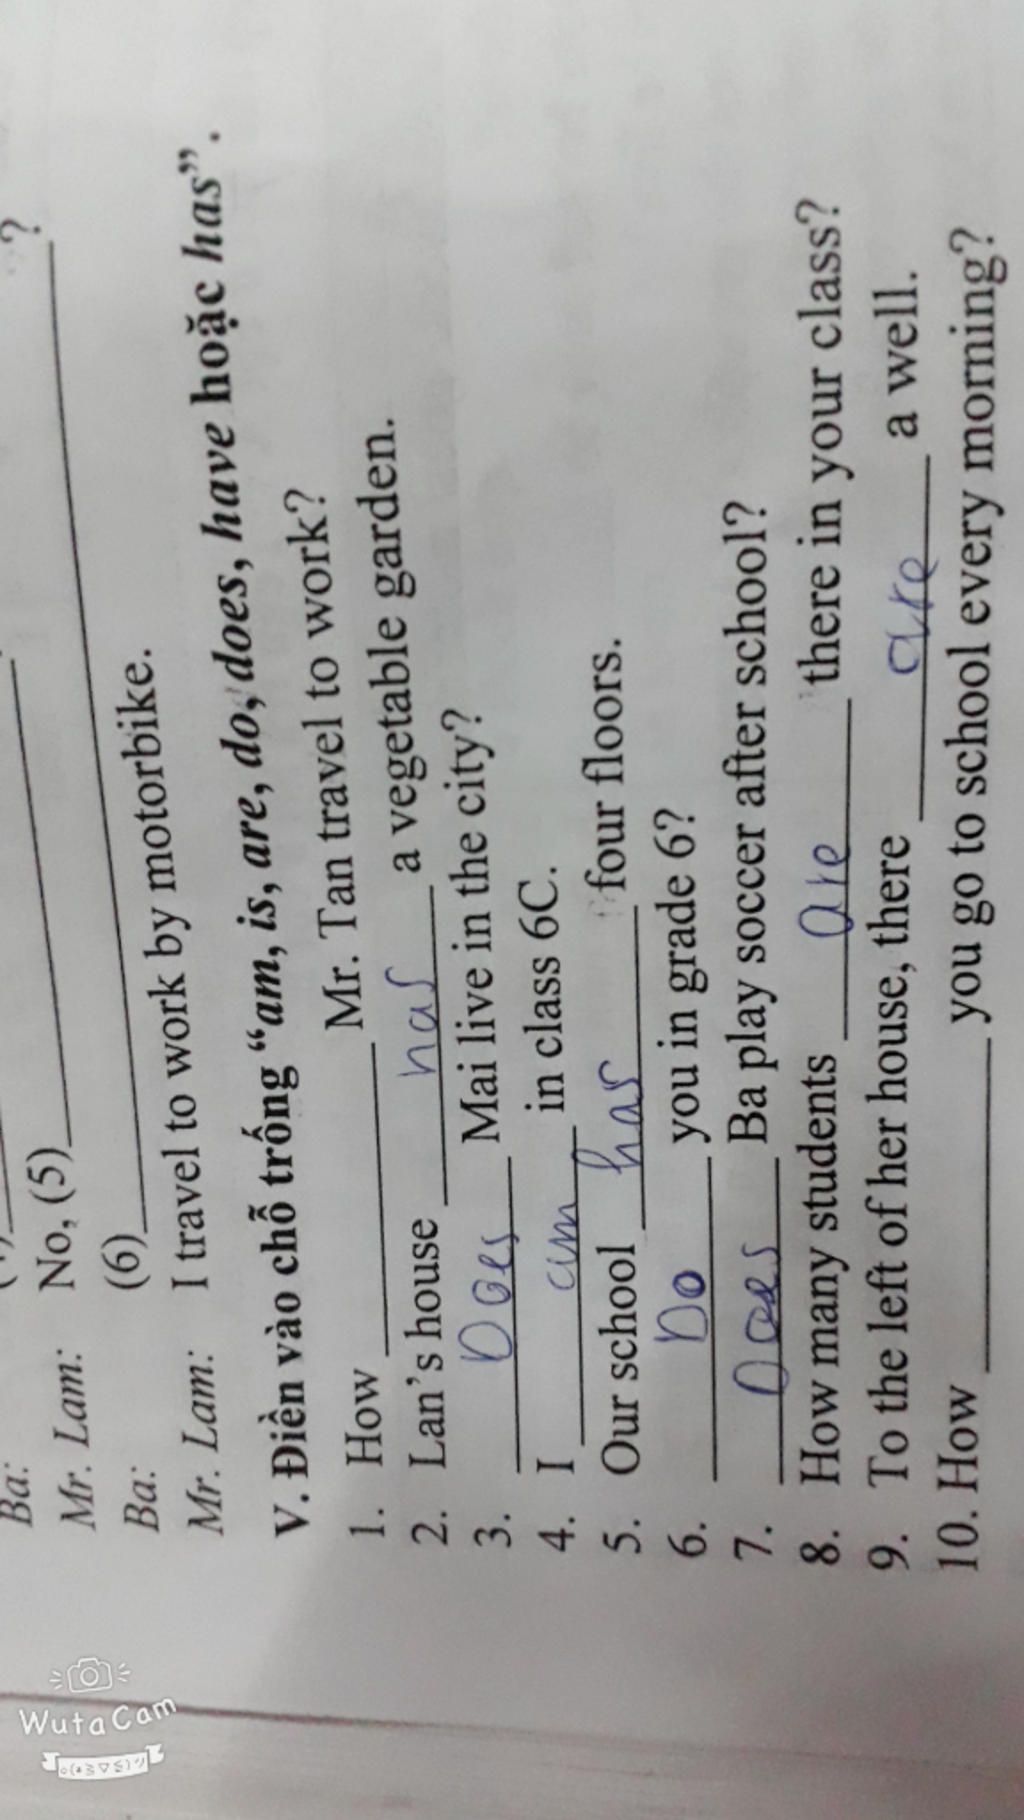 Ba:
Mr. Lam: No, (5)
Ba: (6) ?
Mr. Lam: I travel to work by motorbike.
V. Điền vào chỗ trống “am, is, are, do, does, have hoặc has”.
1. How Mr. Tan travel to work?
2. Lan's house has a vegetable garden.
3. Does Mai live in the city?
4. I am in class 6C.
5. Our school has four floors.
6. Do you in grade 6?
7. Does Ba play soccer after school?
8. How many students are there in your class?
9. To the left of her house, there are a well.
10. How you go to school every morning?
WutaCam